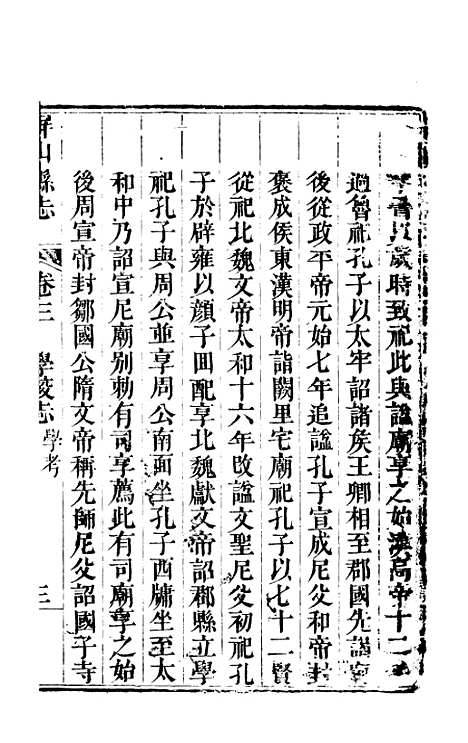 歲時致祀此與謚廟享之始漢高帝十二年
過魯祀孔子以太牢詔諸侯王卿相至郡國先謁廟
後從政平帝元始七年追謚孔子宣成尼父和帝封
褒成侯東漢明帝詣闕里宅廟祀孔子以七十二賢
從祀北魏文帝太和十六年改謚文聖尼父初祀孔
子於辟雍以顏子回配享北魏獻文帝詔郡縣立學
祀孔子與周公並享周公南面坐孔子西牖坐至太
和中乃詔宣尼廟別勅有司享薦此有司廟享之始
後周宣帝封鄒國公隋文帝稱先師尼父詔國子寺
屏山縣志 卷三 學校志 學考 三